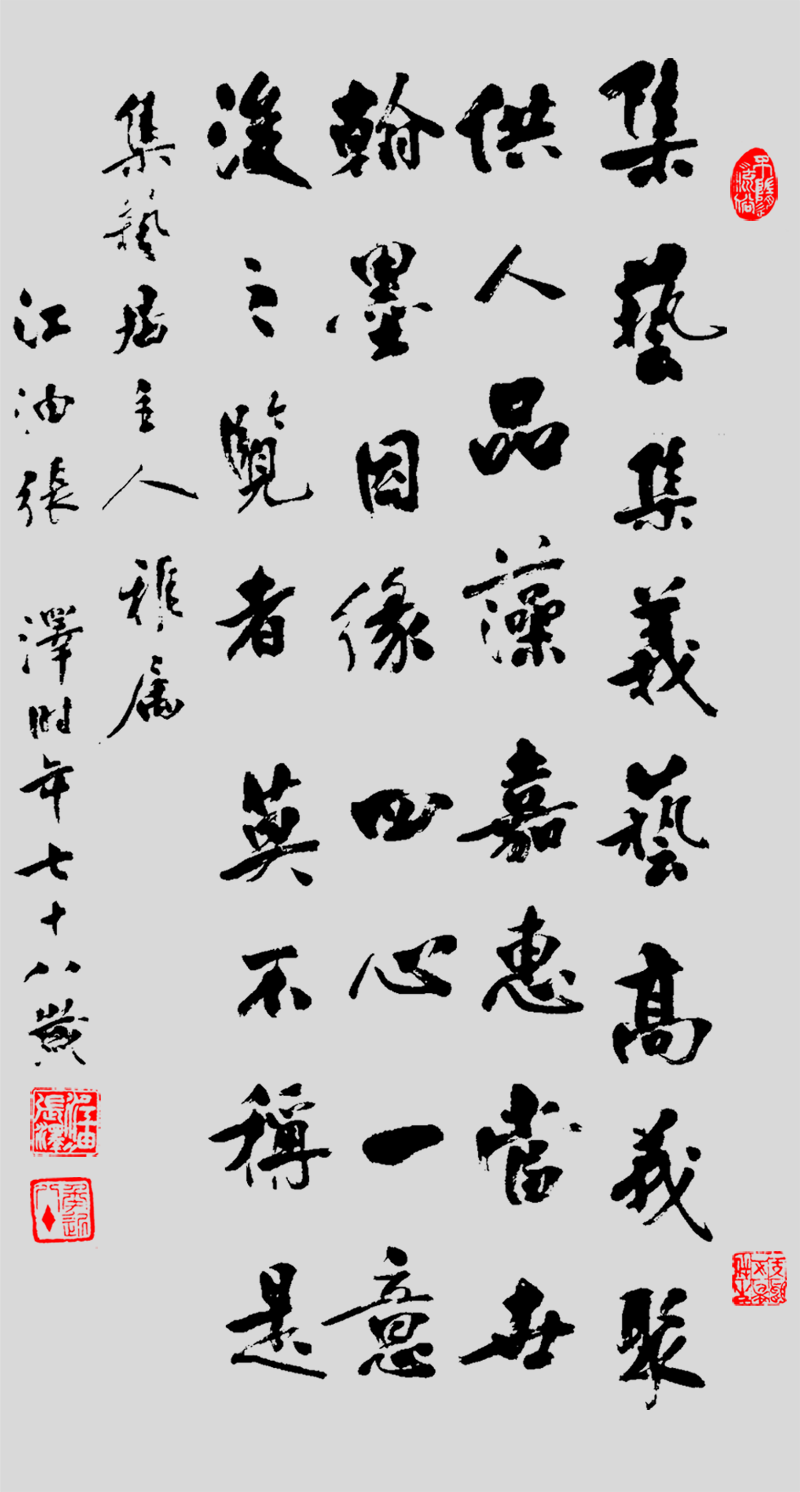 集藝集義藝高義聚
供人品藻嘉惠當世
翰墨因緣四心一意
後之覽者莫不稱是
集藝居主人雅属
江油張澤时年七十八歲
江油張澤